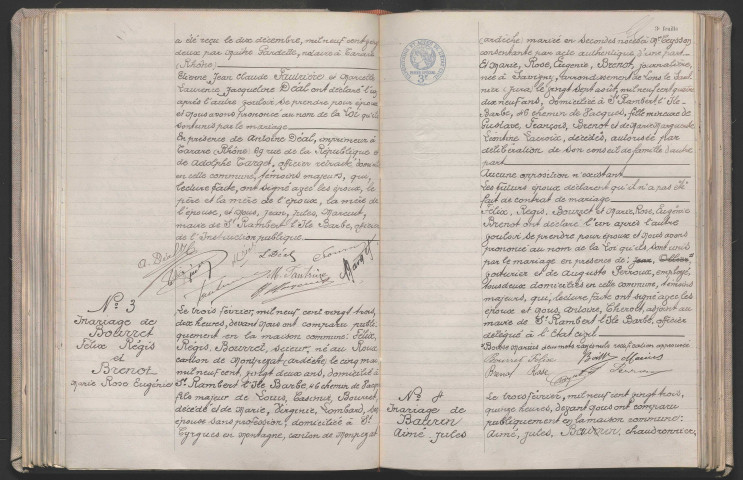 a été reçu le dix décembre, mil neuf cent vingt
deux par Maître Sardelle, notaire à Tarare
(Rhône)
Etienne, Jean Claude et Marcelle
Laurence Jacqueline Déal ont déclaré l'un
après l'autre vouloir se prendre pour époux
et Nous avons prononcé au nom de la Loi qu'ils
sont unis par le mariage
En présence de Antoine Déal, imprimeur à
Tarare (Rhône) rue de la République et
de Adolphe Targe, officier retraité, domicilié
en cette commune, témoins majeurs, qui,
lecture faite, ont signé avec les époux, le
père et la mère de l'époux, la mère de
l'épouse, et Nous, Jean, Jules, Marcuit,
maire de St Rambert l'Ile Barbe, officier
de l'Instruction publique
A. Déal
L Déal
N° 3
Mariage de
Bourret
Félix Régis
et
Brenot
Marie Rose Eugénie
Le trois février, mil neuf cent vingt trois,
deux heures, devant Nous ont comparu publi
quement en la maison commune: Félix,
Régis, Bourret, né au Roux
canton de Montpezat (Ardèche) le cinq mai
mil neuf cent, vingt deux ans, domicilié à
St Rambert l'Ile Barbe, 46 chemin de Vacques
fils majeur de Louis, Casimir, Bourret,
décédé et de Marie, Virginie, Lombard, son
épouse sans profession, domiciliée à St
Cyrgues en Montagne, canton de Montpezat
feuille
(Ardèche) mariée en secondes noces à Mr Teyssier
consentante par acte authentique, d'une part
Et Marie, Rose, Eugénie, Brenot, journalière,
née à Savigny, arrondissement de Lons le Saul
nier (Jura) le vingt août, mil neuf cent
dix neuf ans, domiciliée à St Rambert l'Ile
Barbe, 46 chemin de Vacques, fille mineure de
Gustave, François, Brenot et de Marie Marguerite
Léontine décédés, autorisée par
délibération de son conseil de famille d'autre
part
Aucune opposition n'existant
Les futurs époux déclarent qu'il n'a pas été
fait de contrat de mariage
Félix, Régis, Bourret et Marie, Rose, Eugénie
Brenot ont déclaré l'un après l'autre
vouloir se prendre pour époux et Nous avons
prononcé au nom de la Loi qu'ils sont unis
par le mariage en présence de: Jean,
voiturier et de Auguste Perroux, employé,
tous deux domiciliés en cette commune, témoins
majeurs, qui, lecture faite ont signé avec les
époux et Nous, Antoine, Chenot, adjoint au
maire de St Rambert l'Ile Barbe, officier
délégué à l'Etat civil
Bourret Félix
Brenot Rose
N° 4
Mariage de
Baurin
Aimé Jules
Le trois février, mil neuf cent vingt trois,
quinze heures, devant Nous ont comparu
publiquement en la maison commune:
Aimé, Jules, Baurin, chaudronnier,